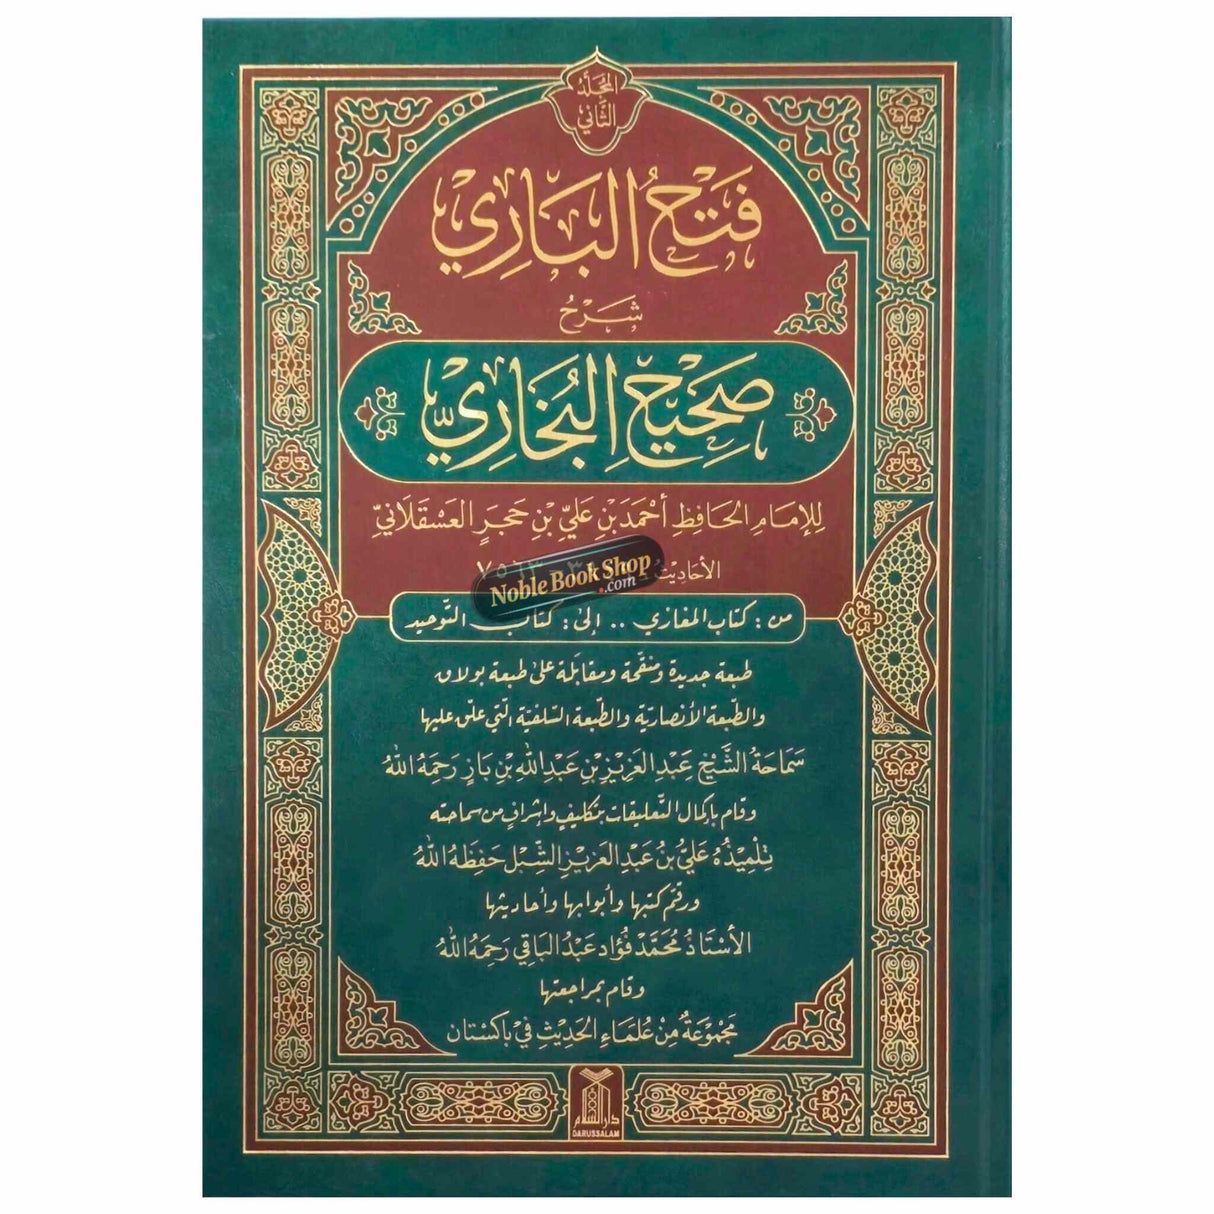 المجلد
الثاني
فَتْحُ البَارِي
شَرْحُ
صَحِيْحِ البُخَارِيِّ
لِلإمَامِ الحَافِظِ أَحْمَدَ بْنِ عَلِيِّ بْنِ حَجَرٍ العَسْقَلَانِيِّ
الأحَاديث
Noble Book Shop
.com
من : كتاب المغازي .. إلى : كتاب التوحيد
طبعة جديدة ومنقحة ومقابلة على طبعة بولاق
والطبعة الأنصارية والطبعة السلفية التي علق عليها
سَمَاحَةُ الشَّيْخِ عَبْدِ العَزِيْزِ بْنِ عَبْدِ اللهِ بْنِ بَازٍ رَحِمَهُ اللهُ
وقام بإكمال التعليقات بتكليفٍ وإشرافٍ من سماحته
تِلْمِيْذُهُ عَلِيُّ بْنُ عَبْدِ العَزِيْزِ الشِّبْل حَفِظَهُ اللهُ
ورقم كتبها وأبوابها وأحاديثها
الأسْتَاذُ مُحَمَّدْ فُؤَاد عَبْدُ البَاقِي رَحِمَهُ اللهُ
وقام بمراجعتها
مَجْمُوْعَةٌ مِنْ عُلَمَاءِ الحَدِيْثِ فِيْ بَاكِسْتَان
دار السلام
DARUSSALAM